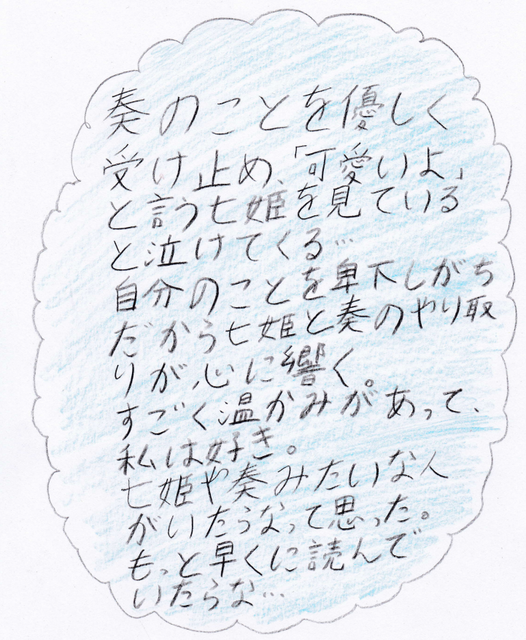 奏のことを優しく
受け止め、「可愛いよ」
と言う七姫を見ている
と泣けてくる…
自分のことを卑下しがち
だから七姫と奏のやり取
りが心に響く。
すごく温かみがあって、
私は好き。
七姫や奏みたいな人
がいたらなって思った。
もっと早くに読んで
いたらな…